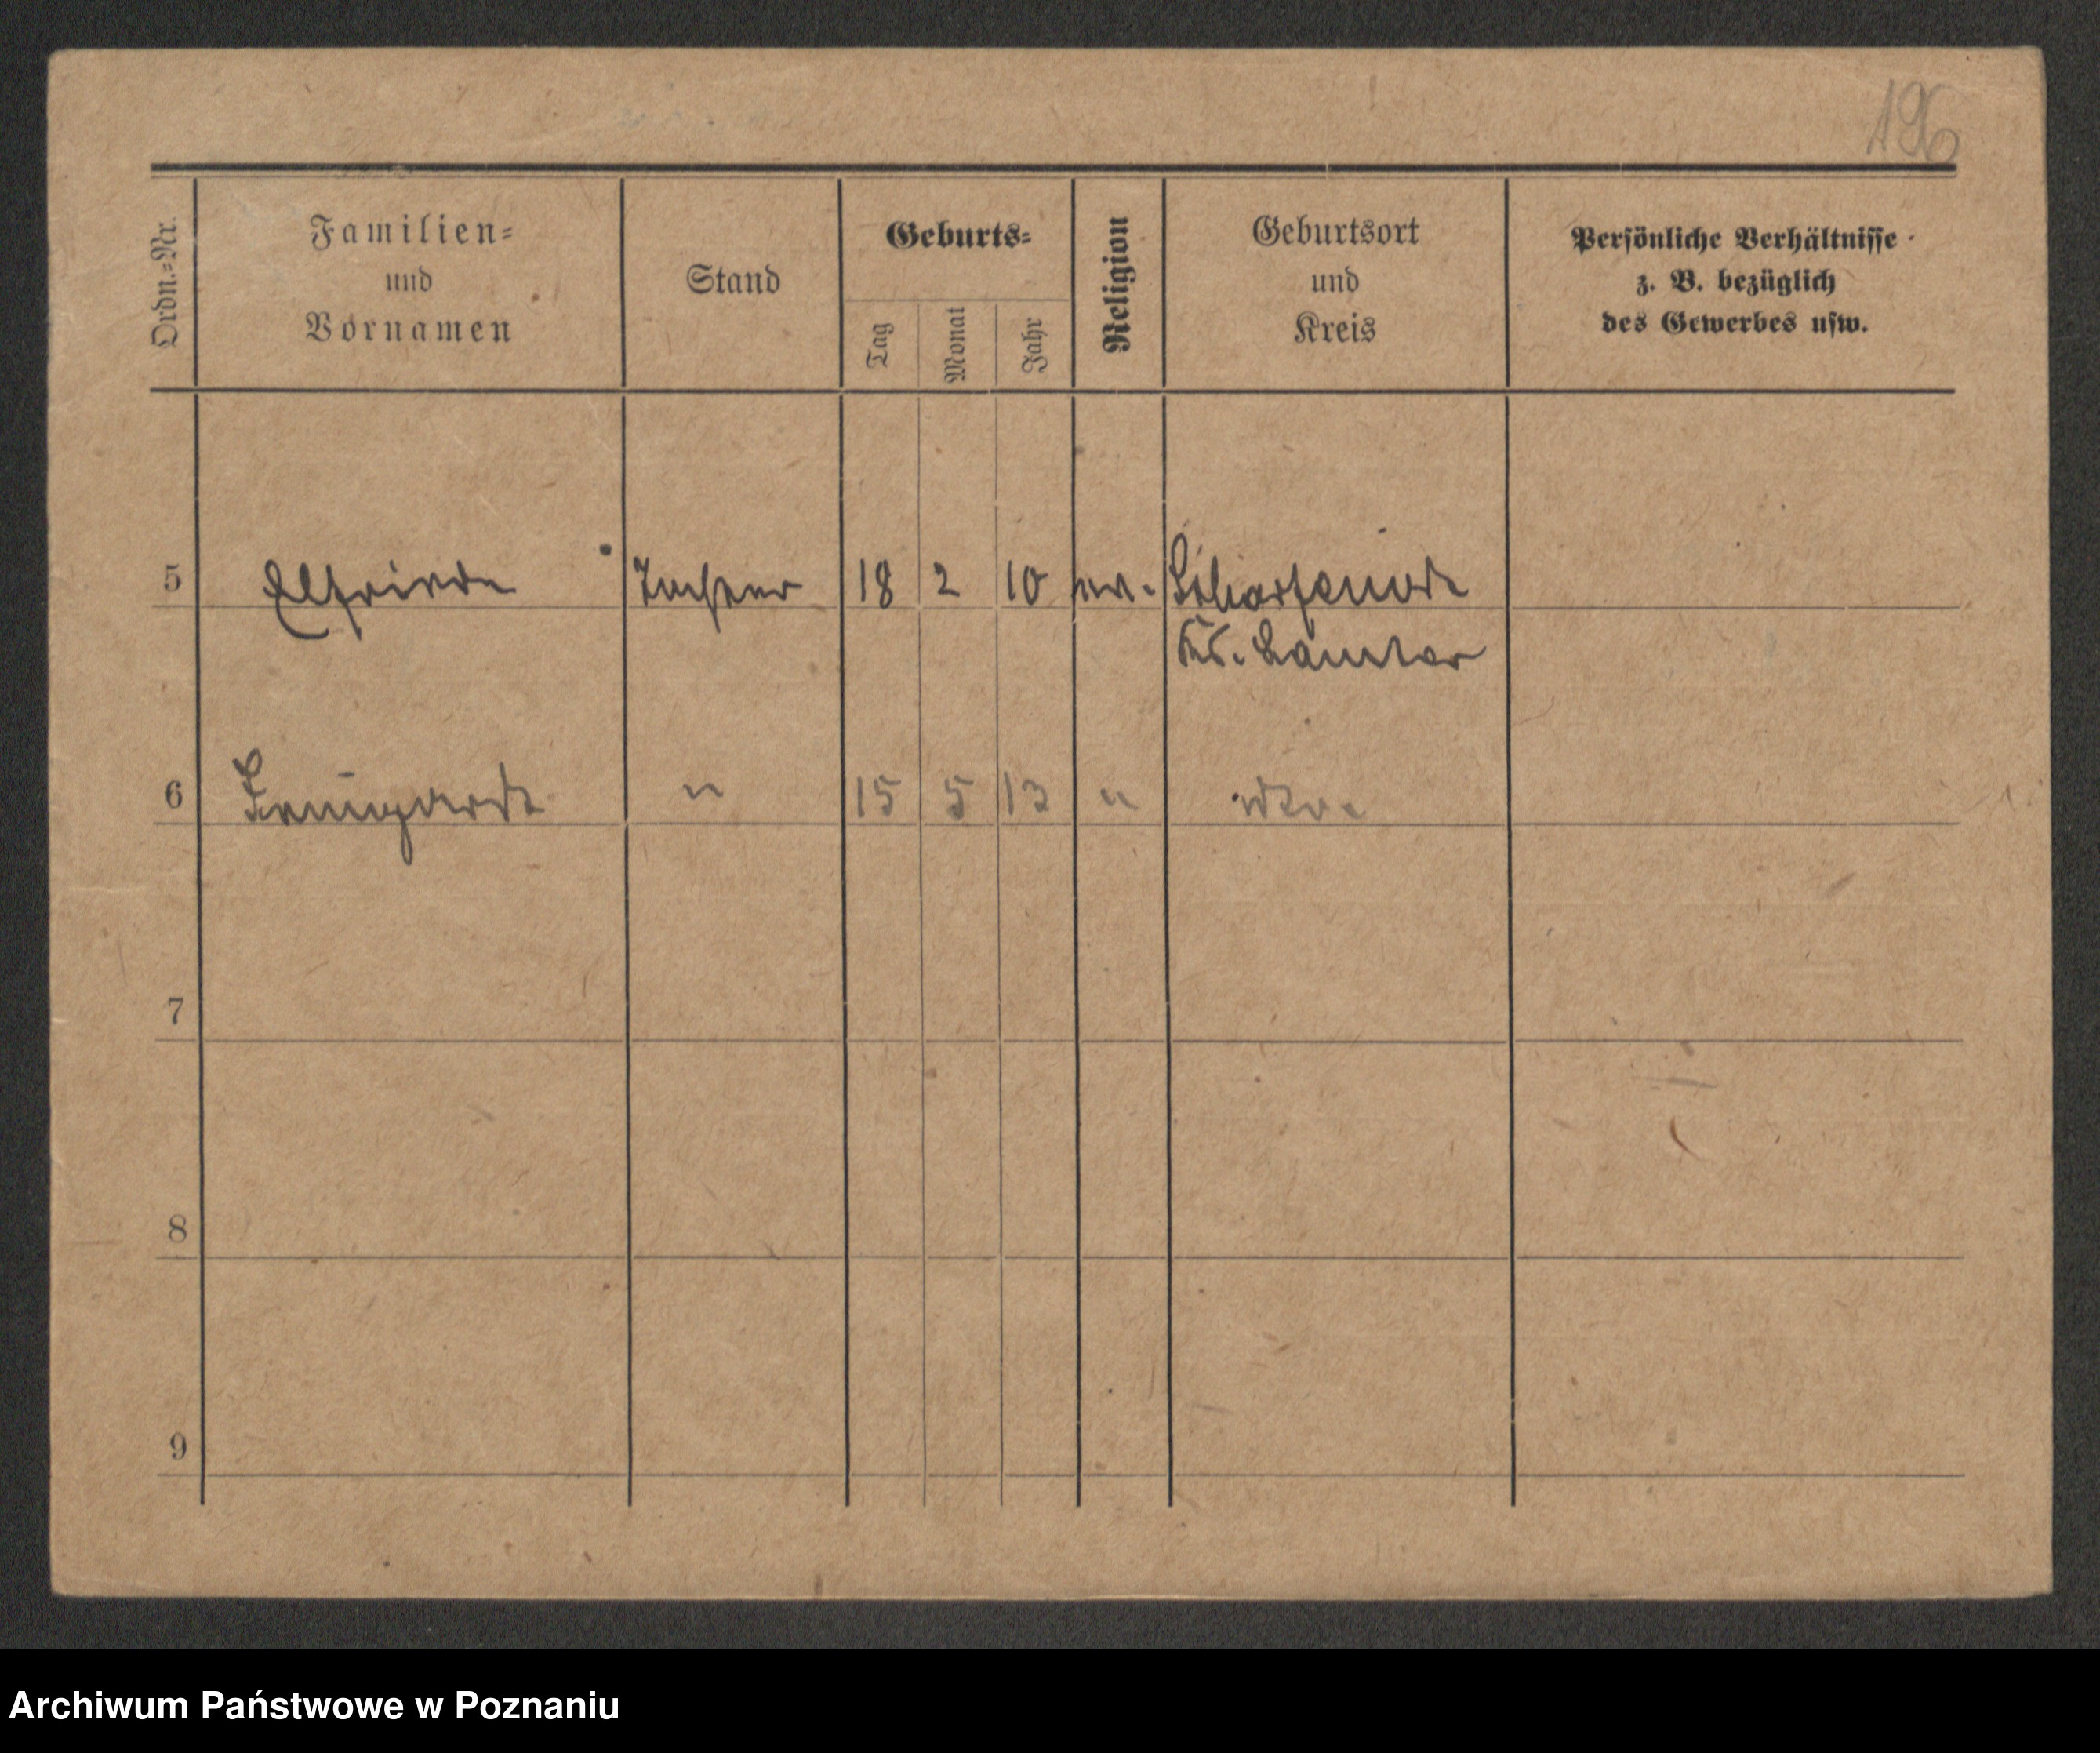 196
Ordn.=Nr.
Familien=
und
Vornamen
Stand
Geburts=
Tag
Monat
Jahr
Religion
Geburtsort
und
Kreis
Persönliche Verhältnisse
z. B. bezüglich
des Gewerbes usw.
5 Elfriede Tochter 18 2 10 ev. Scharfenort
Kr. Samter
6 Irmgardt " 15 5 13 " dto.
7
8
9
Archiwum Państwowe w Poznaniu